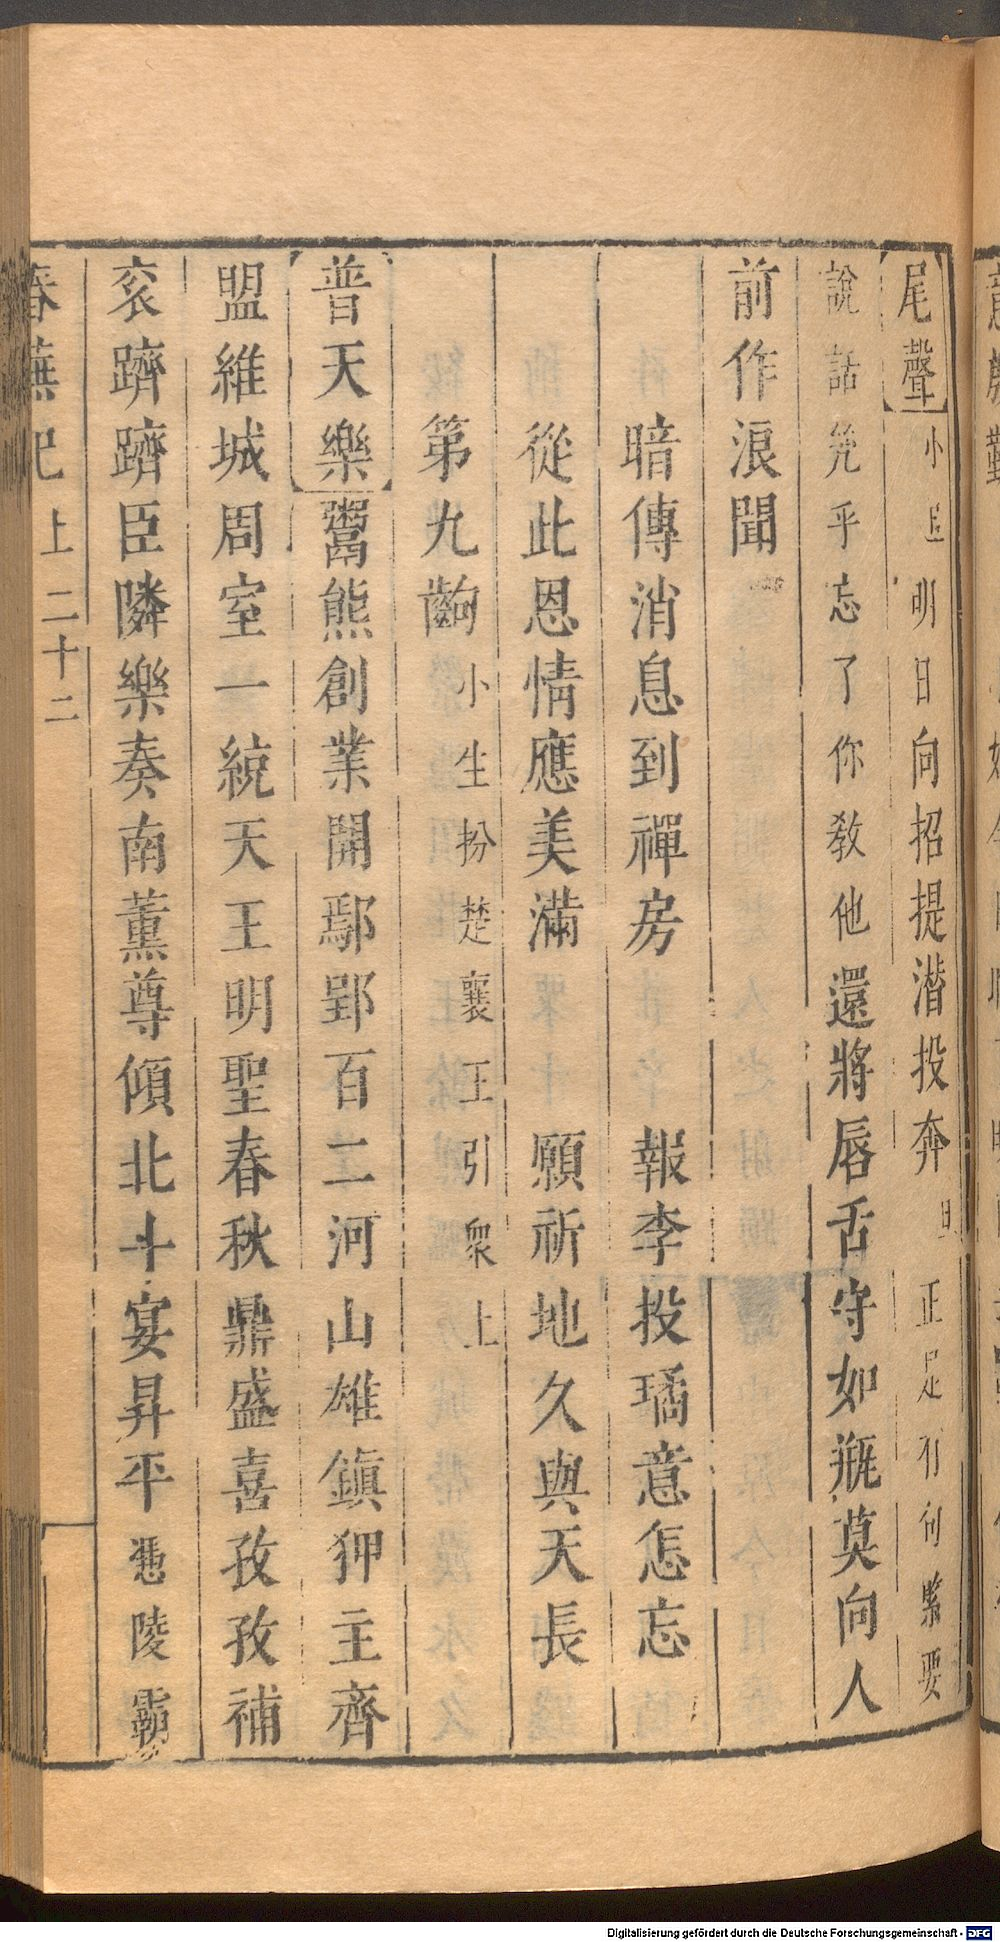 尾聲 小旦明日向招提潛投奔 旦 正是有句緊要
說話兊乎忘了你教他還將唇舌守如瓶莫向人
前作浪聞
暗傳消息到禪房 報李投璚意怎忘
從此恩情應美滿 願祈地久與天長
第九齣 小生扮楚襄王引衆上
普天樂 鬻熊創業開鄢郢百二河山雄鎮狎主齊
盟維城周室一統天王明聖春秋鼎盛喜孜孜補
衮躋躋臣隣樂奏南薰尊傾北斗宴昇平憑陵霸
春蕪記 上 二十二
Digitalisierung gefördert durch die Deutsche Forschungsgemeinschaft - DFG